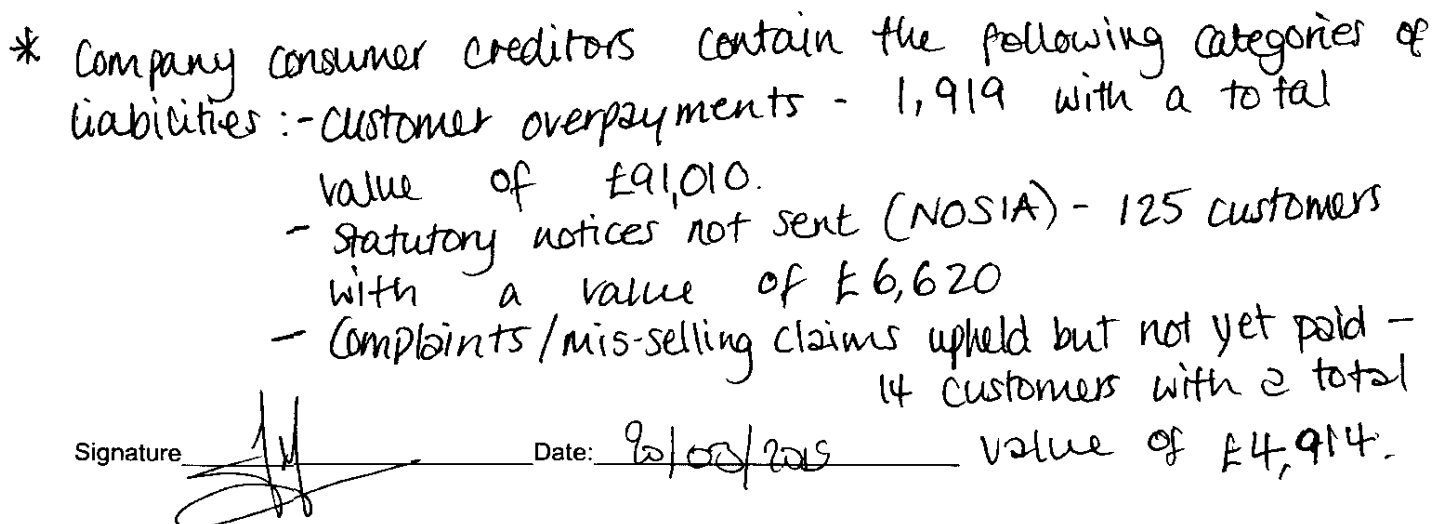 * Company consumer creditors contain the following categories of
liabilities :- customer overpayments - 1,919 with a total
value of £91,010.
- Statutory notices not sent (NOSIA) - 125 customers
with a value of £6,620
- Complaints/mis-selling claims upheld but not yet paid -
14 customers with a total
value of £4,914.
Signature
Date: